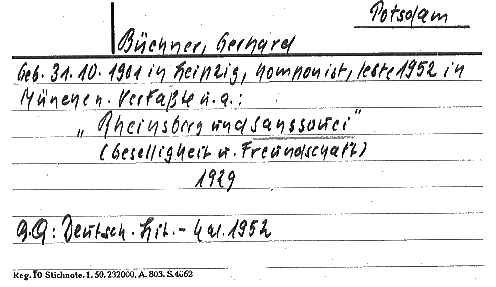 Potsdam
Büchner, Gerhard
Geb. 31.10.1901 in Leipzig, Komponist, lebte 1952 in
München. Verfaßte u.a.:
„Rheinsberg und Sanssouci"
(Geselligkeit u. Freundschaft)
1929
a.a: Deutsch. Lit.-Kal. 1952
Reg. 10 Stichnote. 1. 50. 232000. A. 803. S. 4662